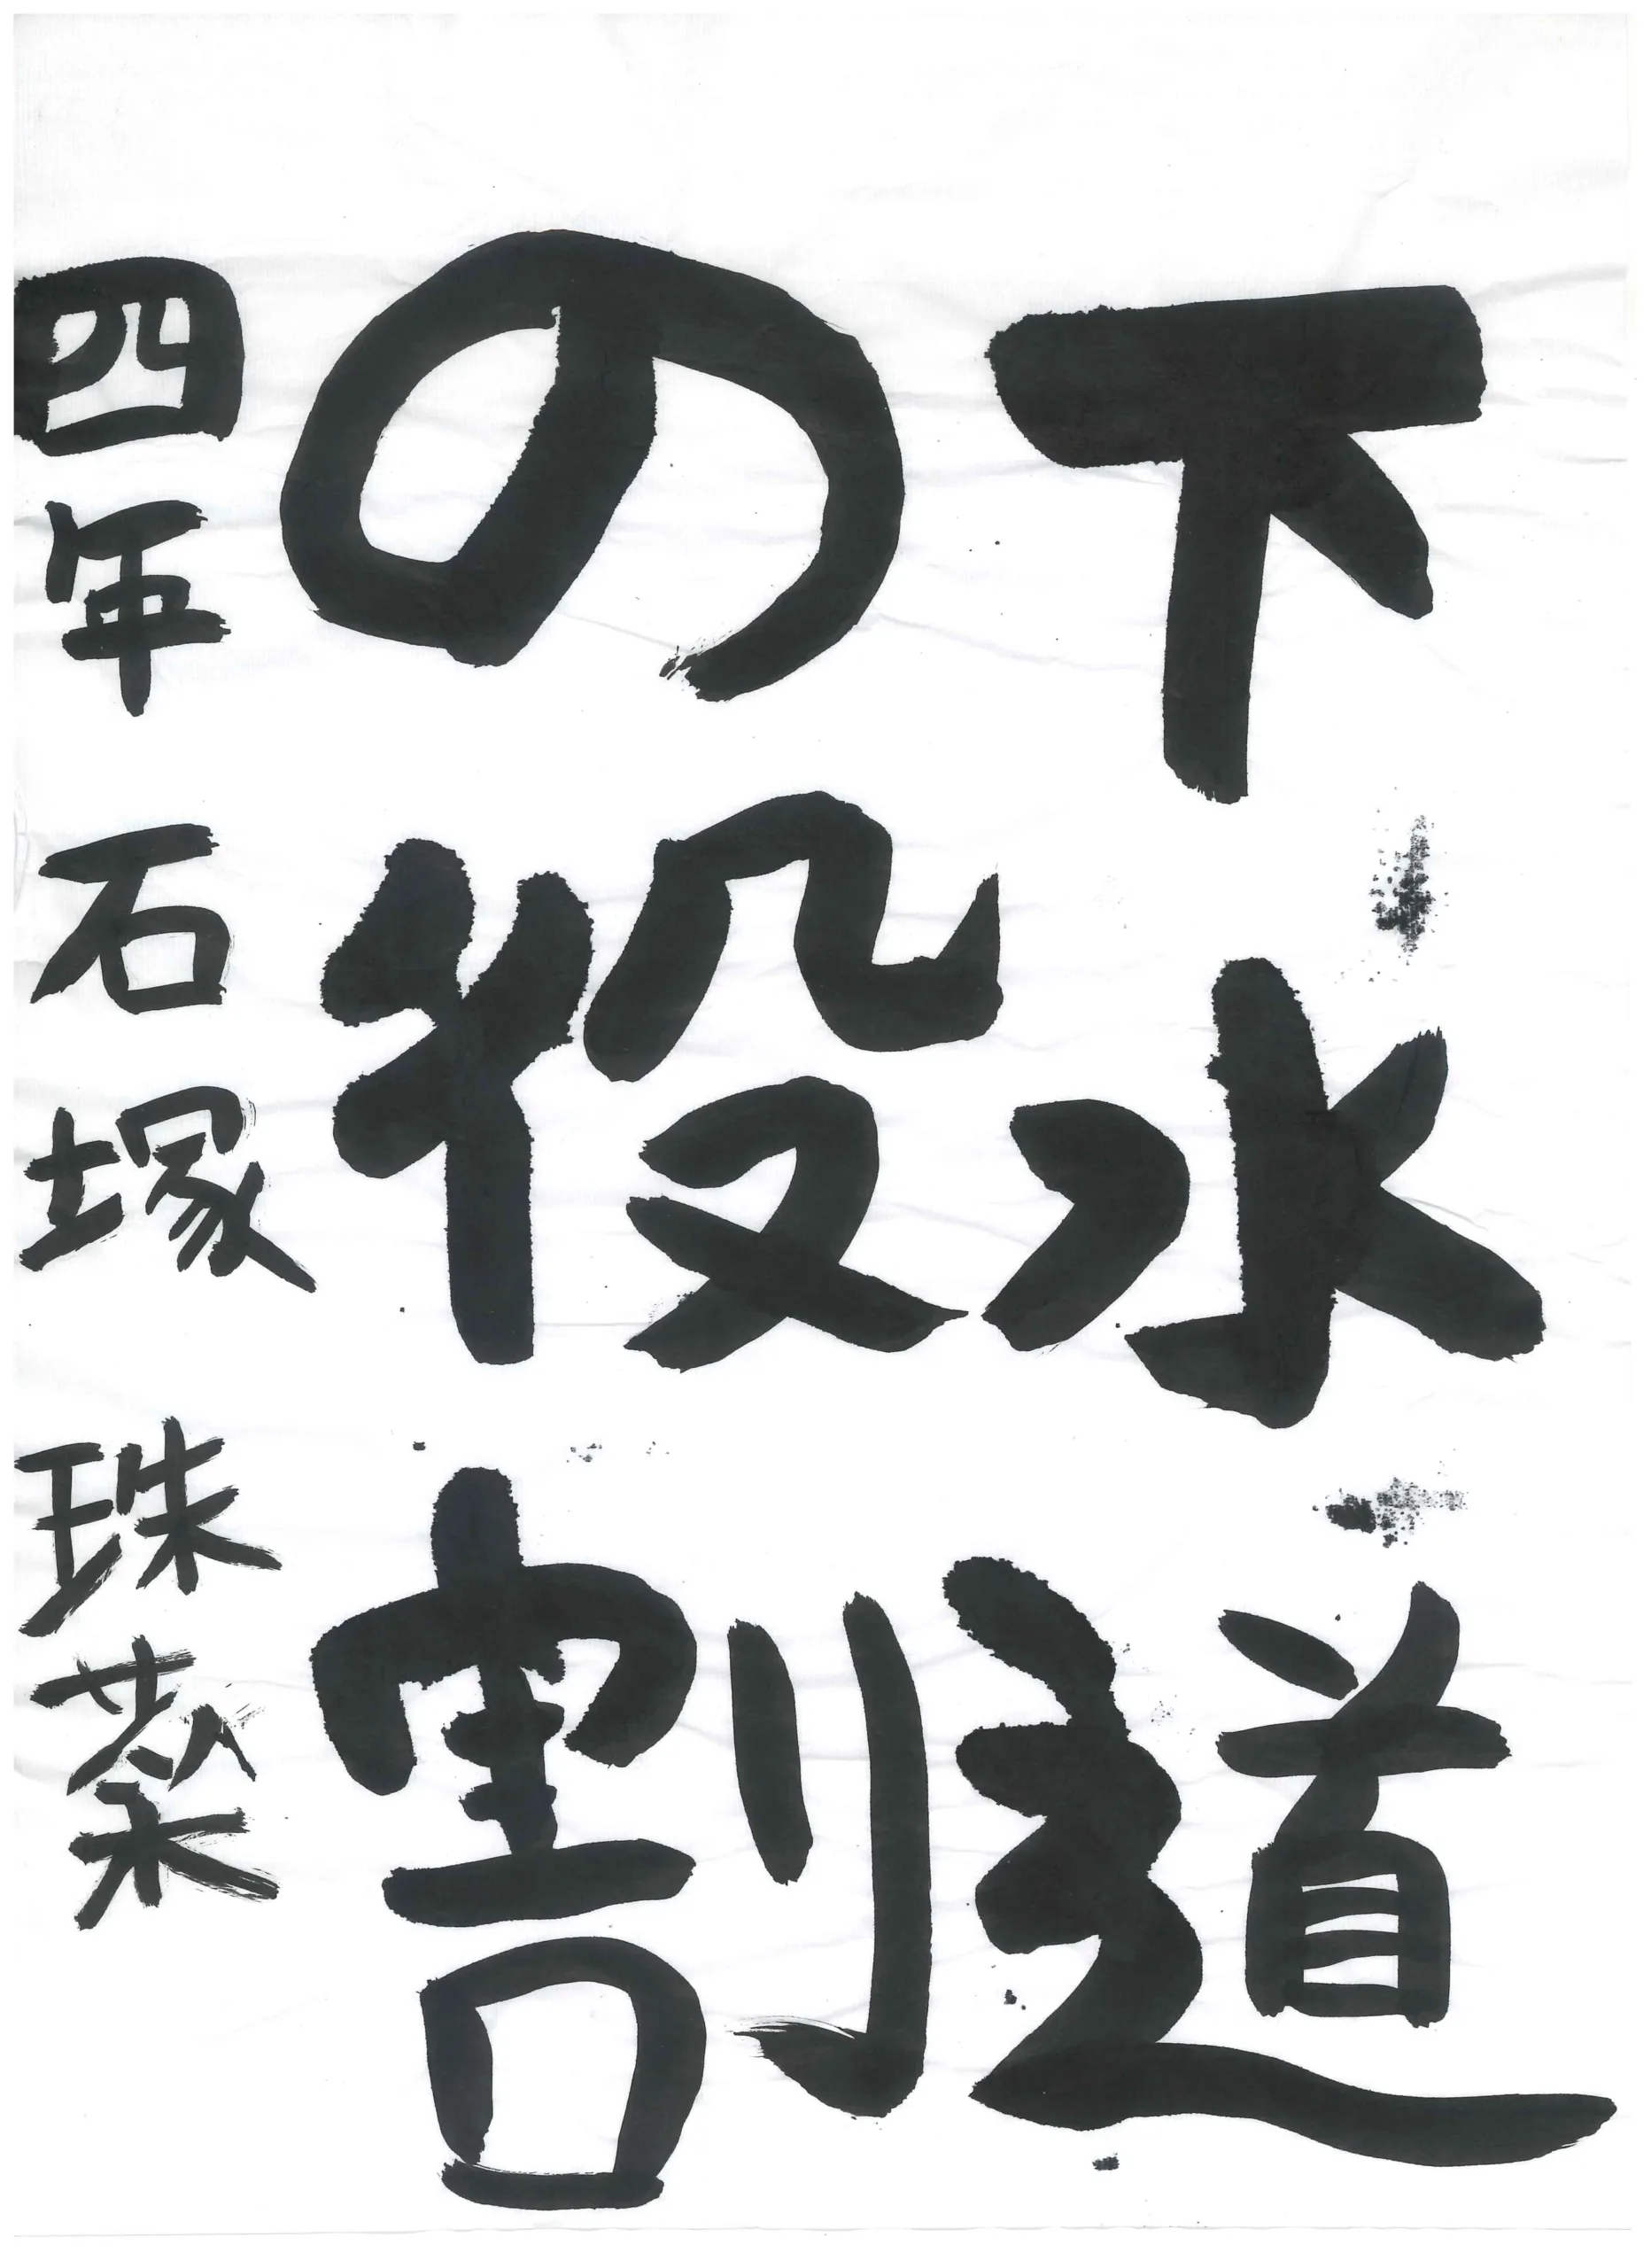 下水道
の役割
四年 石塚 珠葵